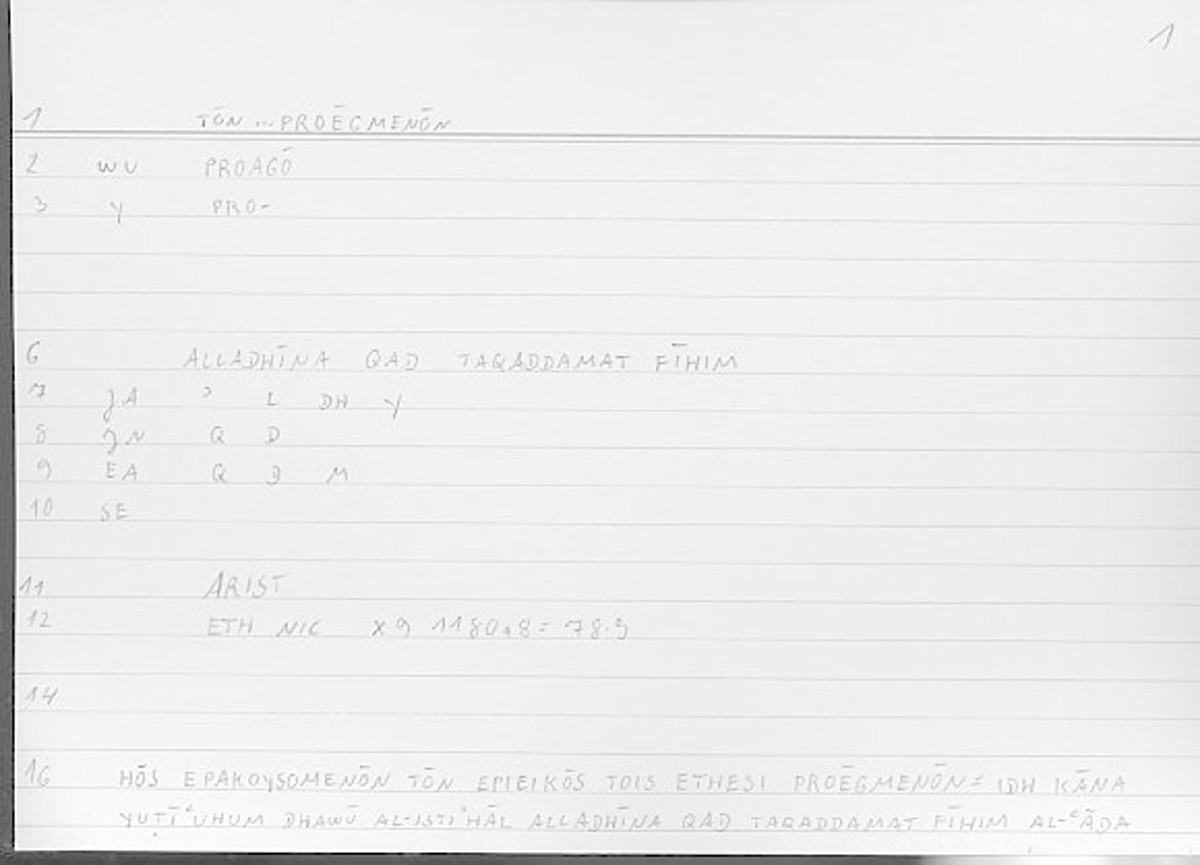 1
1 TŌN ... PROĒGMENŌN
2 WU PROAGŌ
3 Y PRO-
6 ALLADHĪNA QAD TAQADDAMAT FĪHIM
7 JA ʾ L DH Y
8 JN Q D
9 EA Q D M
10 SE
11 ARIST
12 ETH NIC X9 1180a8 = 78.9
14
16 HŌS EPAKOYSOMENŌN TŌN EPIEIKŌS TOIS ETHESI PROĒGMENŌN = IDH KĀNA
YUṬĪʿUHUM DHAWŪ AL-ISTIʾHĀL ALLADHĪNA QAD TAQADDAMAT FĪHIM AL-ʿĀDA